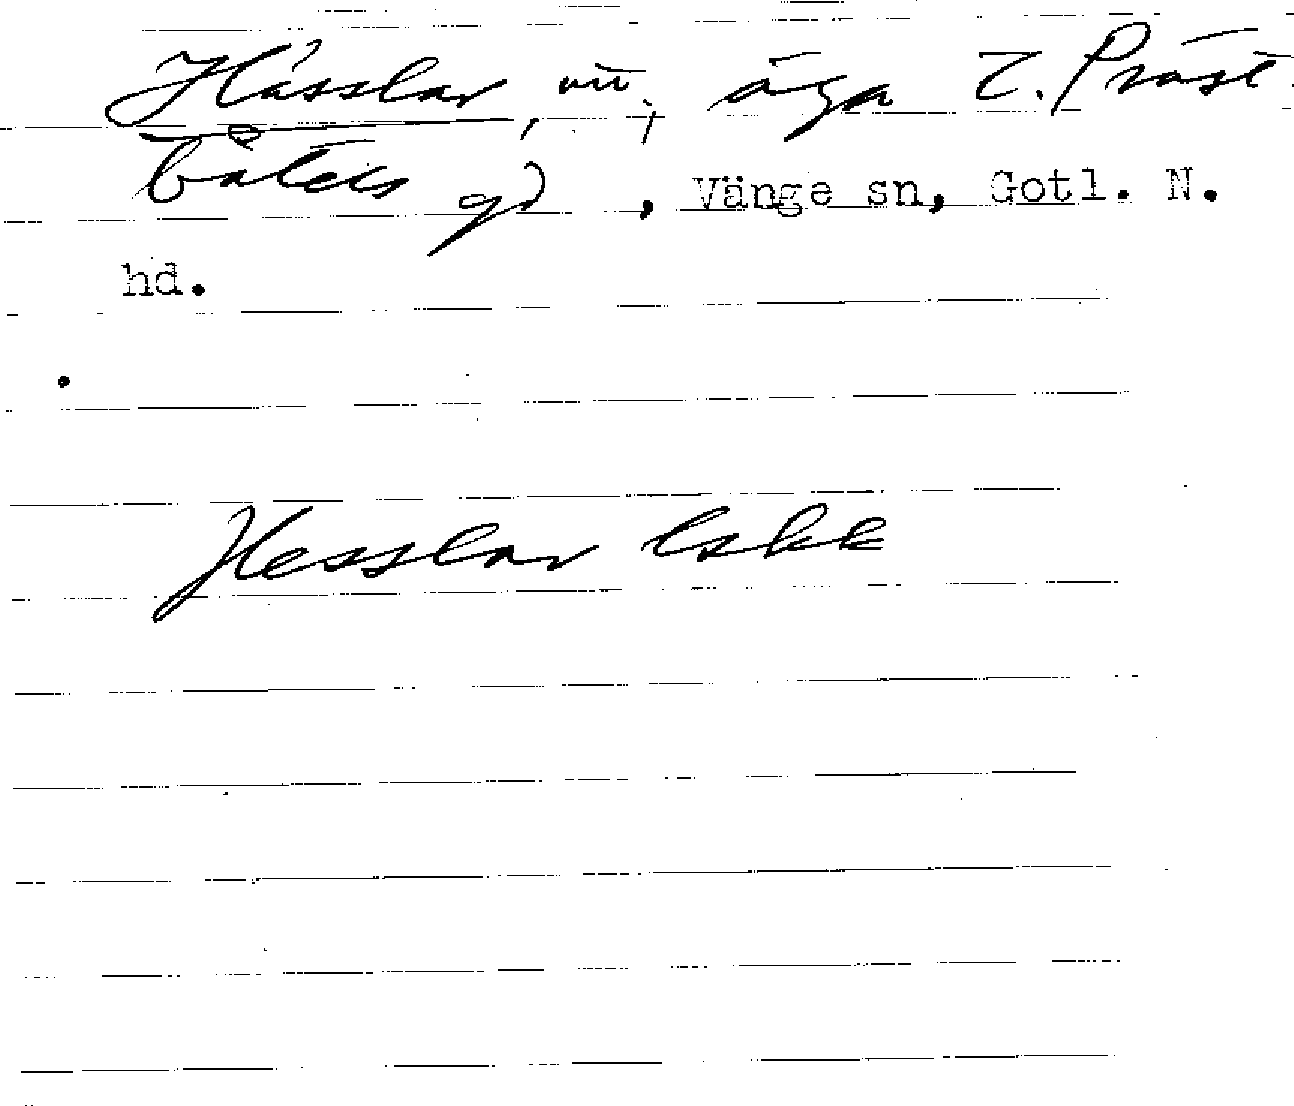 Hässlar, , äga t. Präst-
bolets gd, Vänge sn, Gotl. N.
hd.
Hesslar lskk